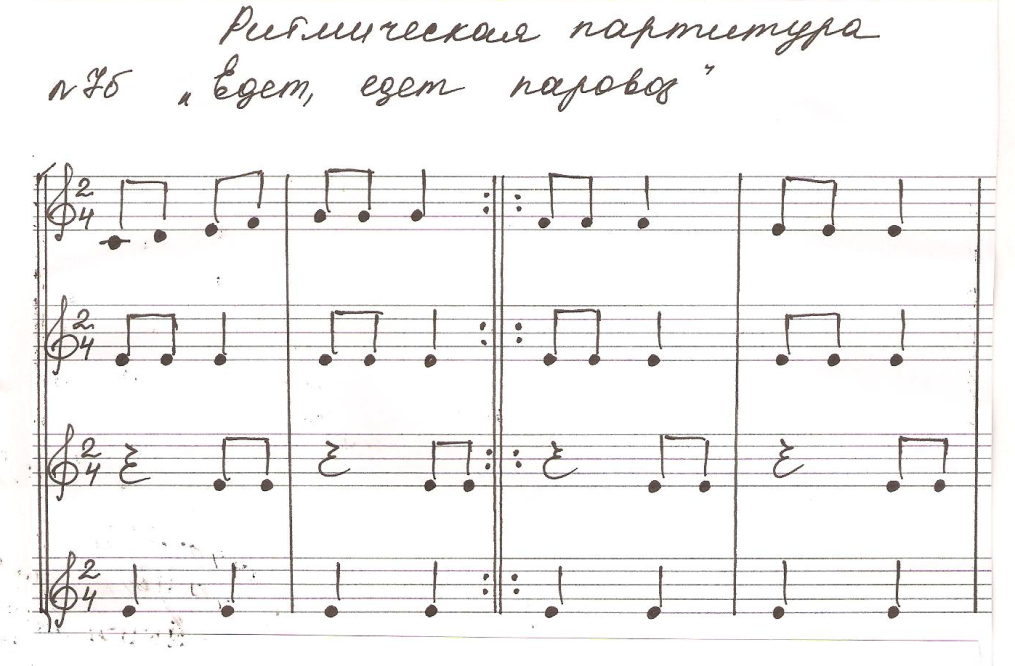 Ритмическая партитура
№ 7б „Едет, едет паровоз"
2 4
2 4
2 4
2 4